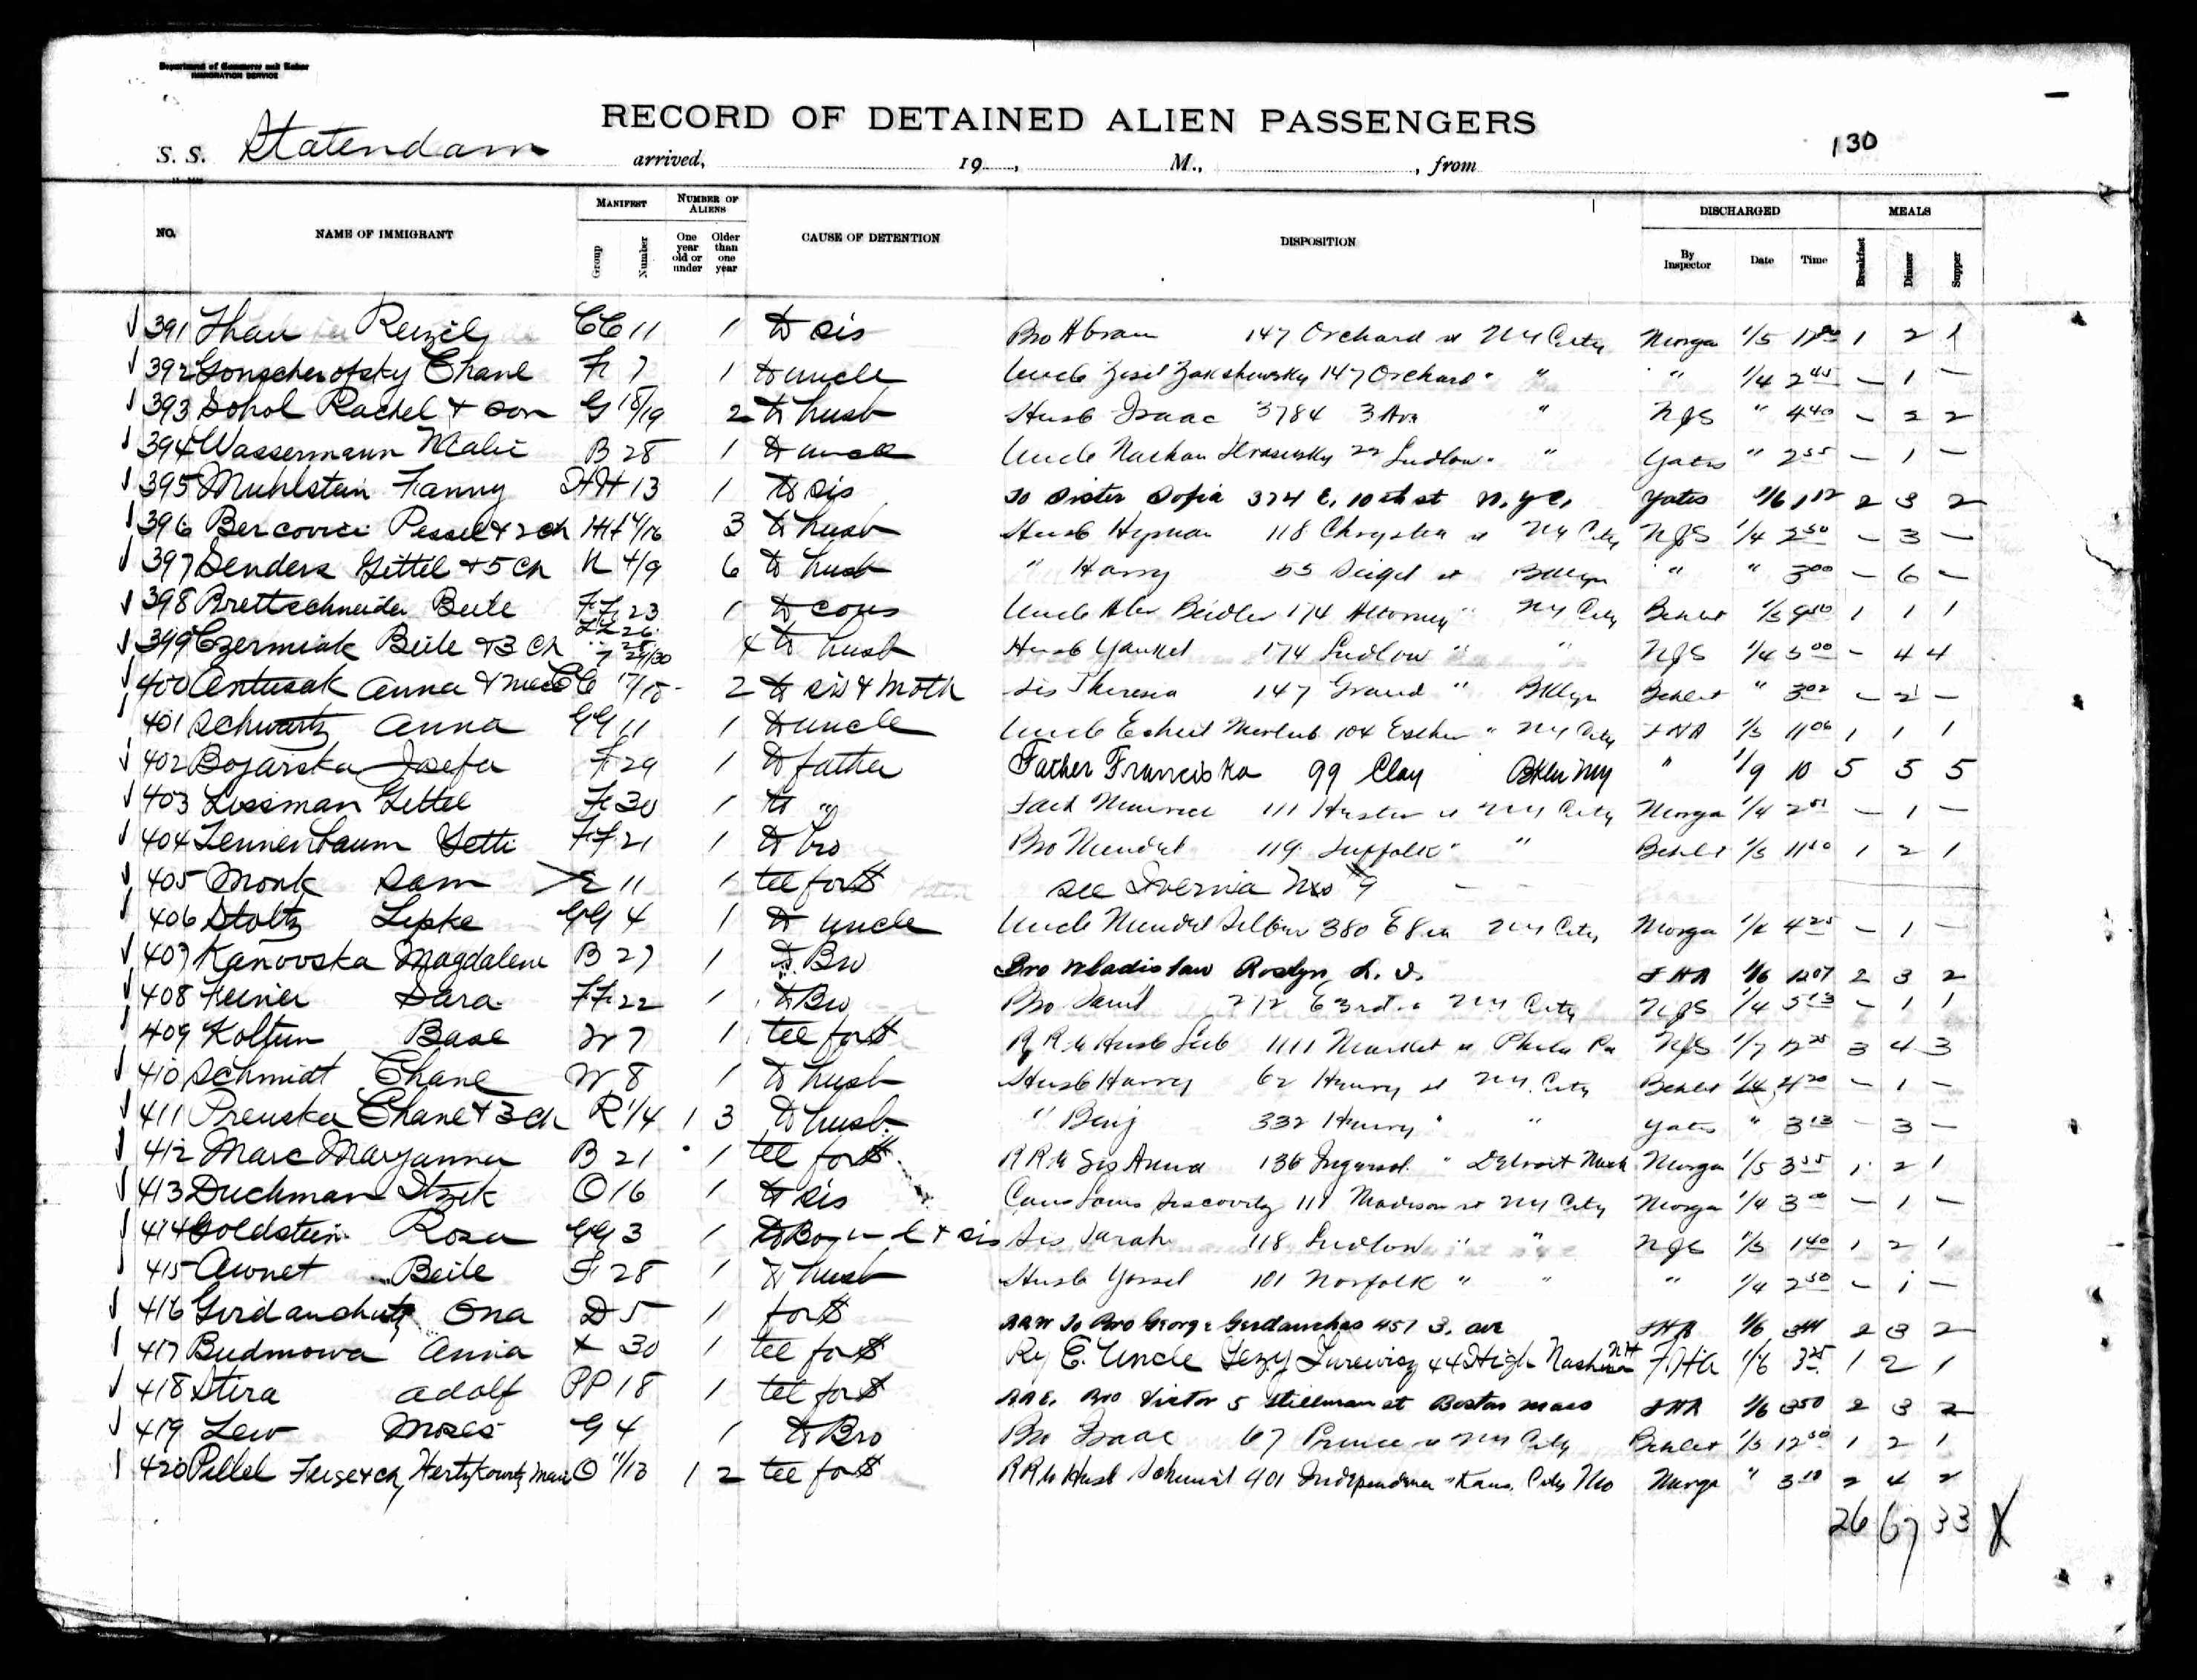 Department of Commerce and Labor
IMMIGRATION SERVICE
RECORD OF DETAINED ALIEN PASSENGERS
130
S. S. Statendam arrived, 19 , M., , from
NO. NAME OF IMMIGRANT MANIFEST Group Number NUMBER OF ALIENS One year old or under Older than one year CAUSE OF DETENTION DISPOSITION DISCHARGED By Inspector Date Time MEALS Breakfast Dinner Supper
391 Thau Reizel CC 11 1 to sis Bro Abram 147 Orchard st NY City 1/5 1 2 1
392 Gonscherofsky Chane F 7 1 to uncle Uncle 147 Orchard " " " 1/4 2 45 – 1 –
393 Sohol Rachel + son G 18/19 2 to husb Husb Isaac 3784 3 Ave " NJS " 4 40 – 2 2
394 Wassermann Malie B 28 1 to uncle Uncle Nathan 22 Ludlow " " Yates " 2 55 – 1 –
395 Muhlstein Fanny HH 13 1 to sis To Sister Sofia 324 E. 10th st N.Y.C. Yates 1/6 1 12 2 3 2
396 Bercovici Pessel + 2 ch HH 14/16 3 to husb Husb Hyman 118 Chrystie st NY City NJS 1/4 2 50 – 3 –
397 Senders Gittel + 5 ch N 4/9 6 to husb " Harry 55 Seigel st Bklyn " " 3 00 – 6 –
398 Brettschneider Beile FF 23 1 to cous Uncle Beidler 174 Attorney " NY City 1/5 9 50 1 1 1
399 Czermiak Beile + 3 ch 29/30 4 to husb Husb Yankel 174 Ludlow " " NJS 1/4 5 00 – 4 4
400 Antusak Anna + niece CC 17/18 2 to sis + moth Sis Theresia 147 Grand " Bklyn " 3 02 – 2 –
401 Schwartz Anna GG 11 1 to uncle Uncle 104 Essex " NY City FHA 1/5 11 06 1 1 1
402 Bojarska Josefa F 29 1 to father Father Franciska 99 Clay Bkln NY " 1/9 10 5 5 5
403 Lissman Gittel F 30 1 to " Fath 111 Hester st NY City 1/4 2 51 – 1 –
404 Tennenbaum Yetti FF 21 1 to bro Bro Mendel 119 Suffolk " " 1/5 11 50 1 2 1
405 Monk Sam E 11 1 tel for $ see Ivernia No 9 –
406 Stoltz Lipke GG 4 1 to uncle Uncle Mendel 380 E 8th NY City 1/4 4 25 – 1 –
407 Kanovska Magdalene B 27 1 to Bro Bro Wladislaw Roslyn L. I. FHA 1/6 12 07 2 3 2
408 Feiner Sara FF 22 1 to Bro Bro David 272 E 3rd st NY City NJS 1/4 5 13 – 1 1
409 Koltun Base W 7 1 tel for $ Husb Leib 1111 Market st Phila Pa NJS 1/7 12 25 3 4 3
410 Schmidt Chane W 8 1 to husb Husb Harry 62 Henry st NY City 1/4 4 20 – 1 –
411 Preuska Chane + 3 ch R 1/4 1 3 to husb " Benj 332 Henry " " Yates " 3 13 – 3 –
412 Marc Maryanna B 21 1 tel for $ Sis Anna 136 Ingersol " Detroit Mich 1/5 3 55 1 2 1
413 Duchman Itzik O 16 1 to sis Cous Louis 111 Madison st NY City 1/4 3 00 – 1 –
414 Goldstein Rosa GG 3 1 to Bro + sis Sis Sarah 118 Ludlow " " NJS 1/5 1 40 1 2 1
415 Awnet Beile F 28 1 to husb Husb Yossel 101 Norfolk " " " 1/4 2 50 – 1 –
416 Girdanchutz Ona D 5 1 for $ To Bro George Gurdanchas 457 3. ave FHA 1/6 2 3 2
417 Budmowa Anna X 30 1 tel for $ Uncle 44 High Nashua NH FHA 1/6 3 25 1 2 1
418 Stira Adolf PP 18 1 tel for $ Bro Victor 5 Stillman st Boston Mass FHA 1/6 3 50 2 3 2
419 Lew Moses G 4 1 to Bro Bro Isaac 67 Prince st NY City 1/5 12 50 1 2 1
420 Pellel Feige + ch, O 11/13 1 2 tel for $ Husb 901 Independence " Kans. City Mo " 3 10 2 4 2
26 67 33 X